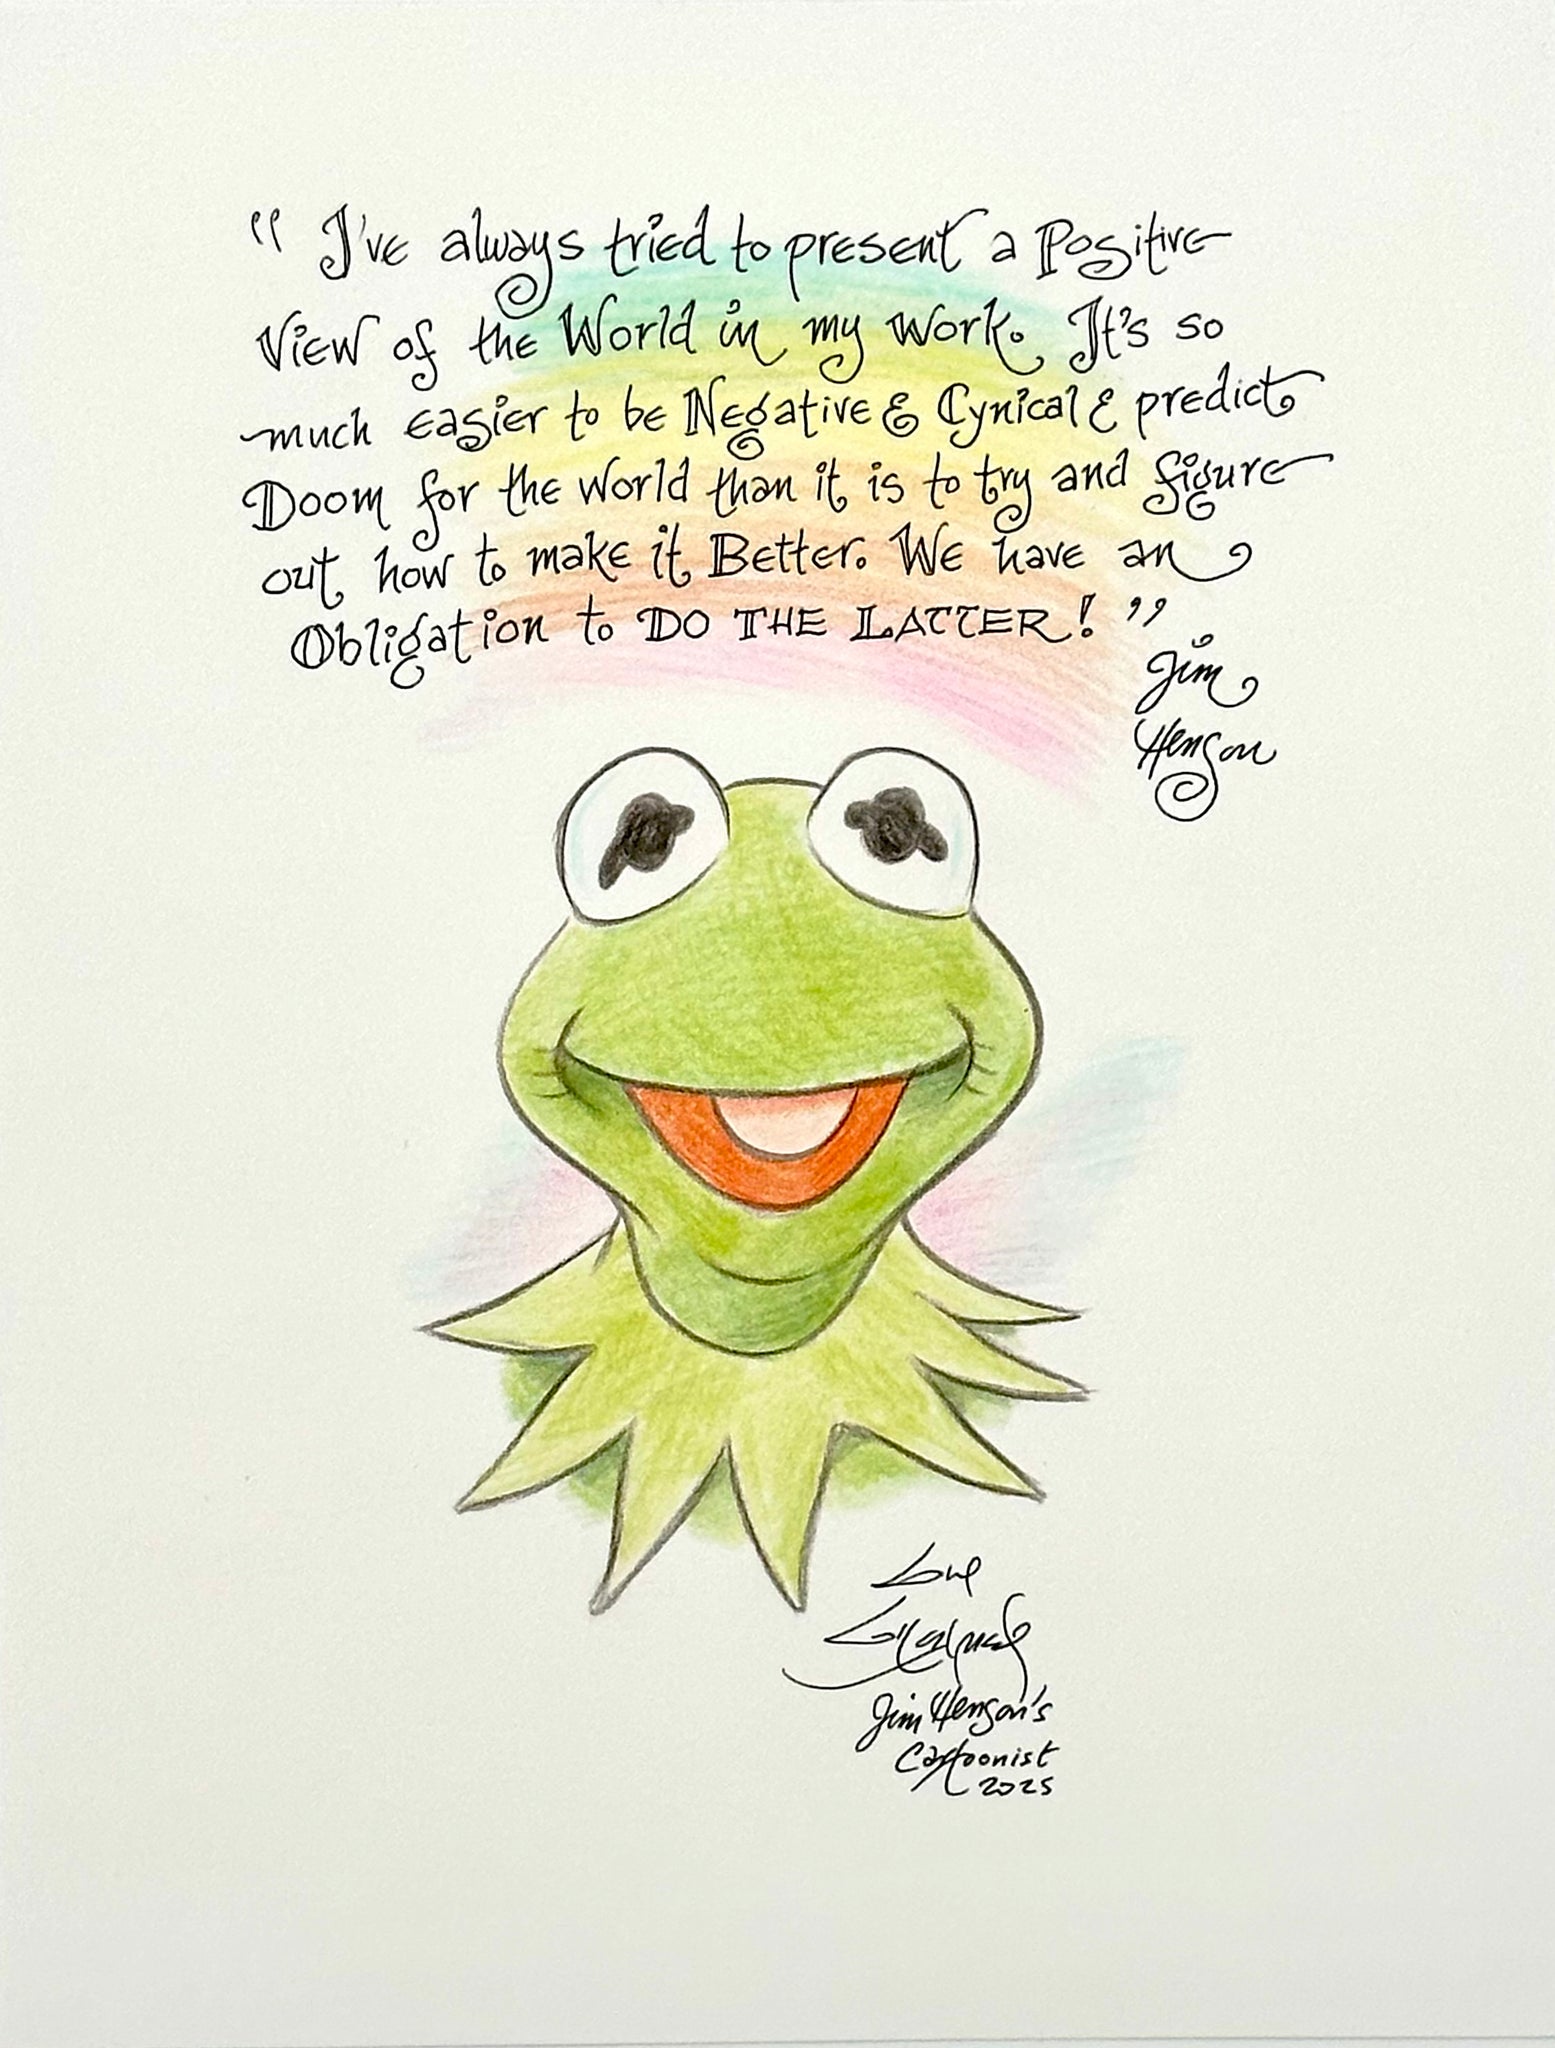 “ I've always tried to present a Positive
View of the World in my work. It's so
much easier to be Negative & Cynical & predict
Doom for the world than it is to try and figure
out how to make it Better. We have an
Obligation to DO THE LATTER! ”
Jim
Henson
Love
Jim Henson's
Cartoonist
2025